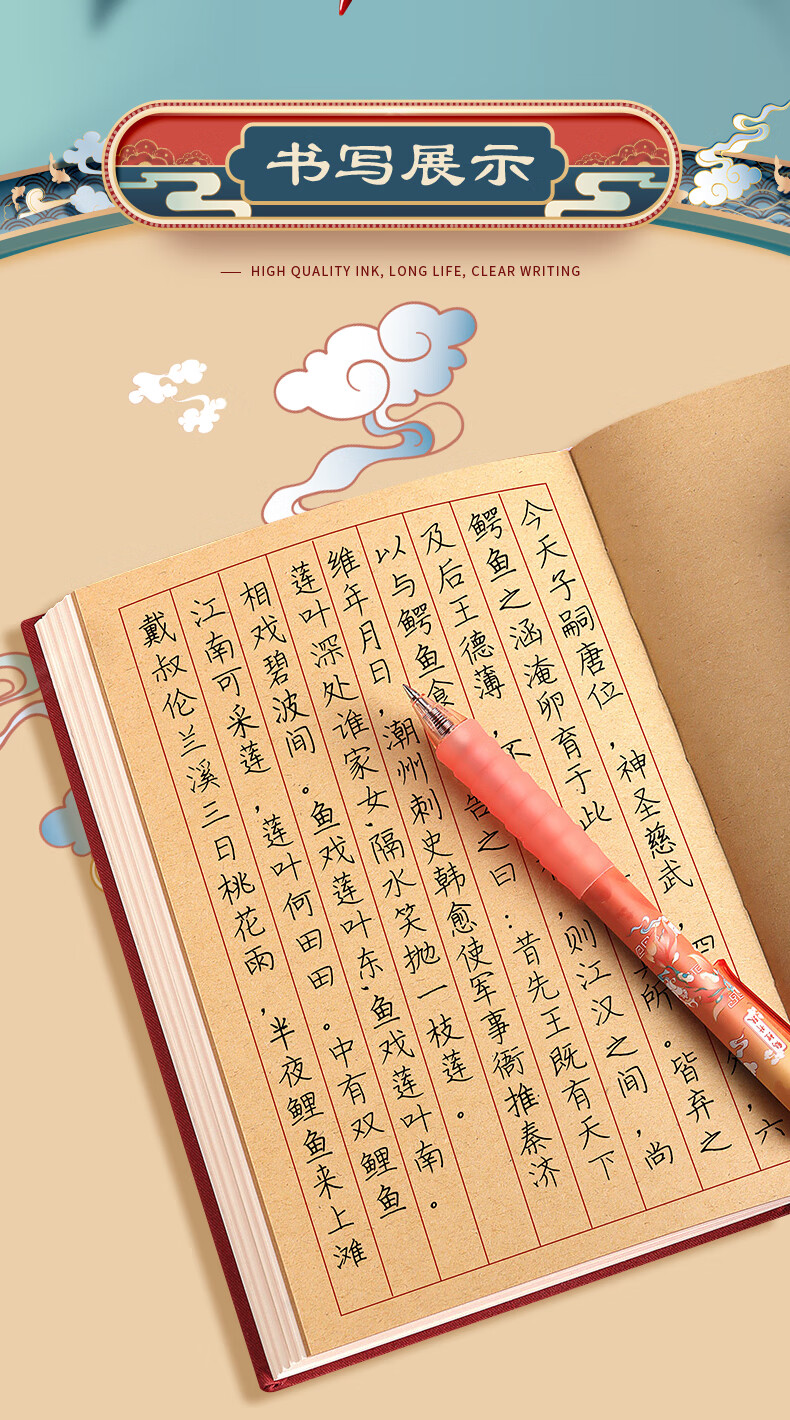 书写展示
HIGH QUALITY INK, LONG LIFE, CLEAR WRITING
戴叔伦兰溪三日桃花雨，半夜鲤鱼来上滩
江南可采莲，莲叶何田田。中有双鲤鱼
相戏碧波间。鱼戏莲叶东，鱼戏莲叶南。
莲叶深处谁家女，隔水笑抛一枝莲。
维年月日，潮州刺史韩愈使军事衙推秦济
以与鳄鱼食告之曰：昔先王既有天下
及后王德薄，不，则江汉之间，尚
鳄鱼之涵淹卵育于此所。皆弃之
今天子嗣唐位，神圣慈武，四，六